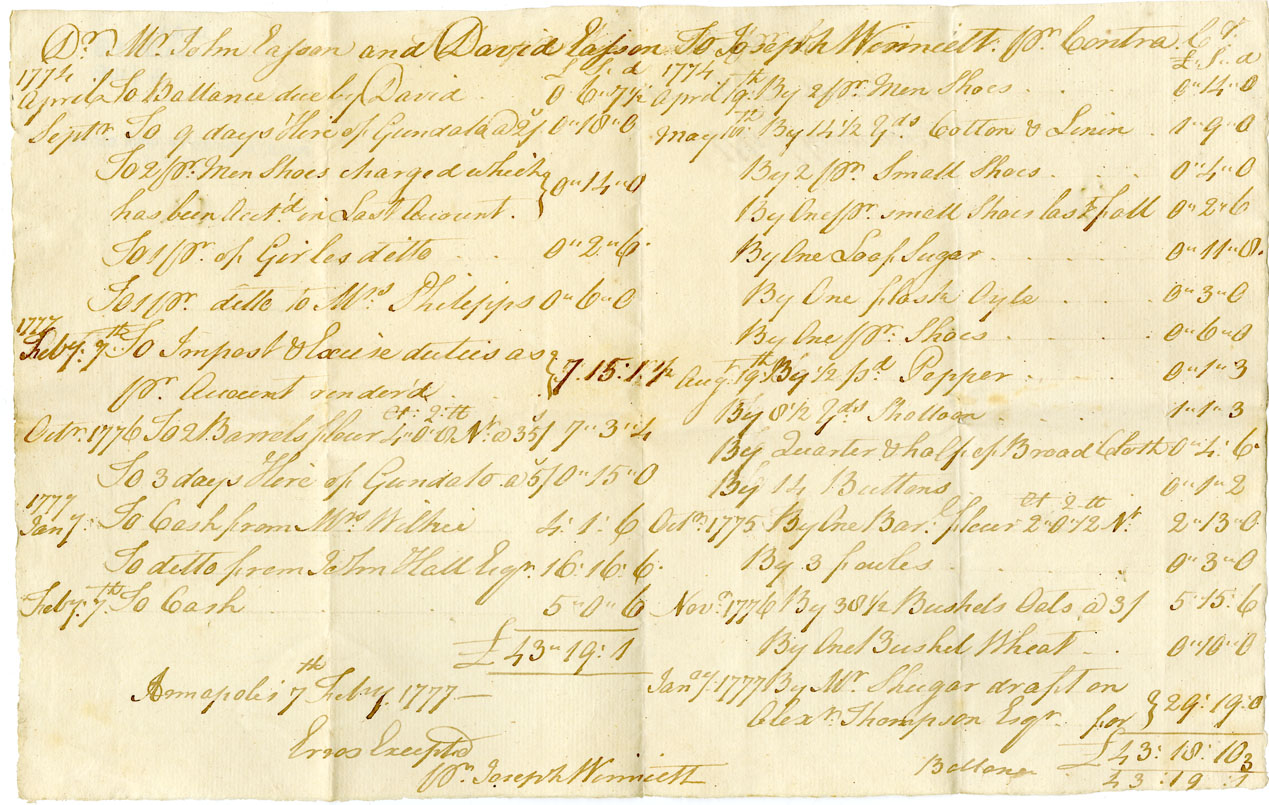 Dr. Mr. John Easson and David Easson To Joseph Winniett pr. Contra Cr.
1774 £ S d
April To Ballance due by David 0 6" 7 1/2
Septr. To 9 days Hire of Gundalo @ 2/ 0" 18" 0
To 2 pr. Men Shoes charged which
has been Acct'd in Last Account. } 0" 14" 0
To 1 pr. of Girles ditto 0" 2" 6
To 1 pr. ditto to Mrs. Philipps 0" 6" 0
1777
Feby. 7th. To Impost & Excise duties as
pr. Account render'd } 7. 15: 1 1/2
Ct: 2: lb
Octr. 1776 To 2 Barrels flour 4" 0" 8 Nt. @ 35/ 7" 3" 4
To 3 days Hire of Gundalo @ 5/ 0" 15" 0
1777
Jany. To Cash from Mrs. Wilkie 4: 1: 6
To ditto from John Hall Esqr. 16: 16: 6
Feby. 7th To Cash 5" 0" 6
£ 43" 19: 1
Annapolis 7th Feby. 1777
Erros Excepted
pr. Joseph Winniett
1774 £" S" d
April 19th. By 2 pr. Men Shoes 0" 14" 0
May 10th. By 14 1/2 Yds Cotton & Linin 1" 9" 0
By 2 pr. Small Shoes 0" 4" 0
By One pr. small Shoes last fall 0" 2" 6
By One Loaf Sugar 0" 11" 8
By One flask Oyle 0" 3" 0
By One pr. Shoes 0" 6" 0
Augt. 19th. By 1/2 pd Pepper 0" 1" 3
By 8 1/2 Yds Shalloon 1" 1" 3
By Quarter & half of Broad Cloth 0" 4: 6
By 14 Buttons 0" 1" 2
Ct 2 lb
Octr. 1775 By One Bar: flour 2" 0" 12 Nt. 2" 13" 0
By 3 foules 0" 3" 0
Novr. 1776 By 38 1/2 Bushels Oats @ 3/ 5: 15: 6
By One Bushel Wheat 0" 10" 0
Jany. 1777 By Mr. Shugar draft on
Alexr. Thompson Esqr. for } 29: 19: 0
£ 43: 18: 10
Ballance 3
43: 19: 1